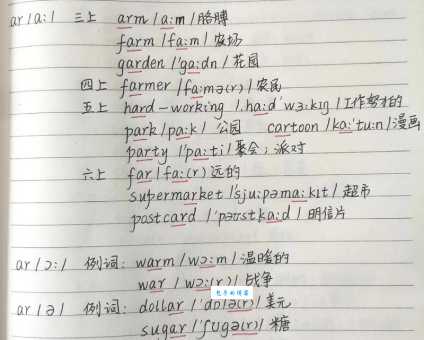 ar /a:/ 三上 arm /a:m/ 胳膊
farm /fa:m/ 农场
garden /'ga:dn/ 花园
四上 farmer /fa:mə(r)/ 农民
五上 hard-working /,ha:d'wɜ:kɪŋ/ 工作努力的
park /pa:k/ 公园 cartoon /ka:'tu:n/ 漫画
party /'pa:ti/ 聚会；派对
六上 far /fa:(r)/ 远的
supermarket /'sju:pəma:kɪt/ 超市
postcard /'pəʊstka:d/ 明信片
ar /ɔ:/ 例词: warm /wɔ:m/ 温暖的
war /wɔ:(r)/ 战争
ar /ə/ 例词: dollar /'dɒlə(r)/ 美元
sugar /'ʃʊgə(r)/ 糖